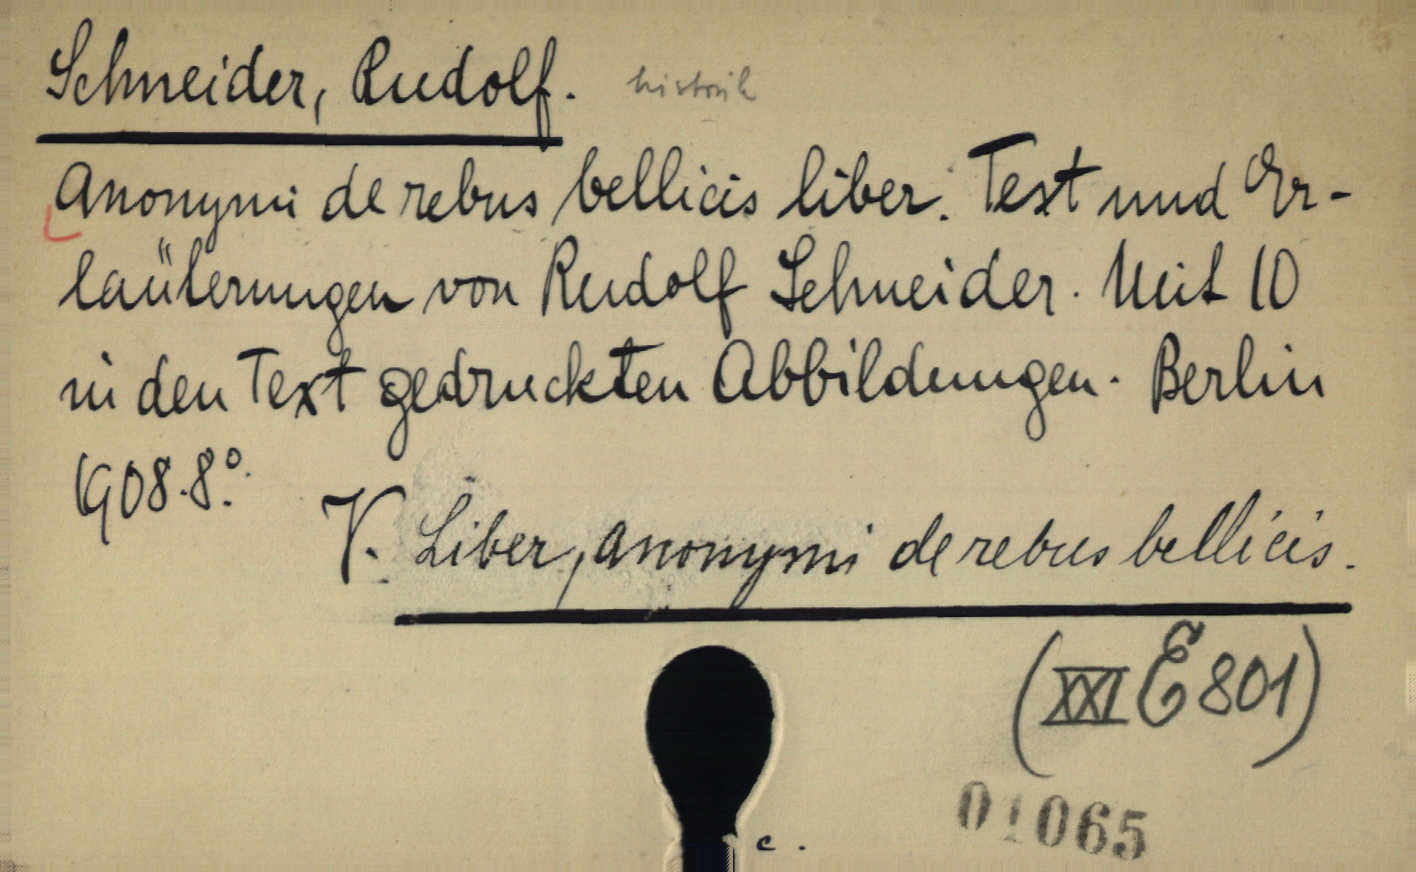 Schneider, Rudolf. historik
Anonymi de rebus bellicis liber. Text und Er-
läuterungen von Rudolf Schneider. Mit 10
in den Text gedruckten Abbildungen. Berlin
1908. 8°.
V. Liber, anonymi de rebus bellicis.
(XXI E 801)
01065
c.